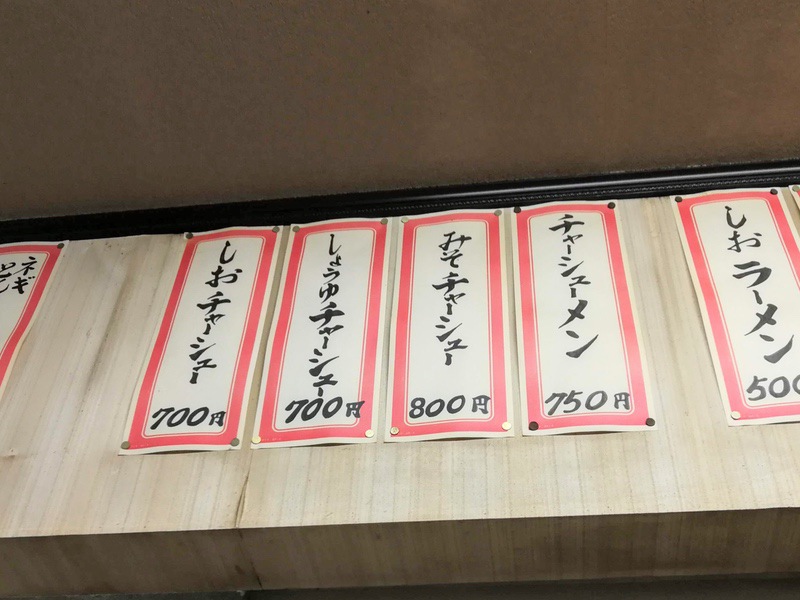 しおラーメン
500
チャーシューメン
750円
みそチャーシュー
800円
しょうゆチャーシュー
700円
しおチャーシュー
700円
ネギ